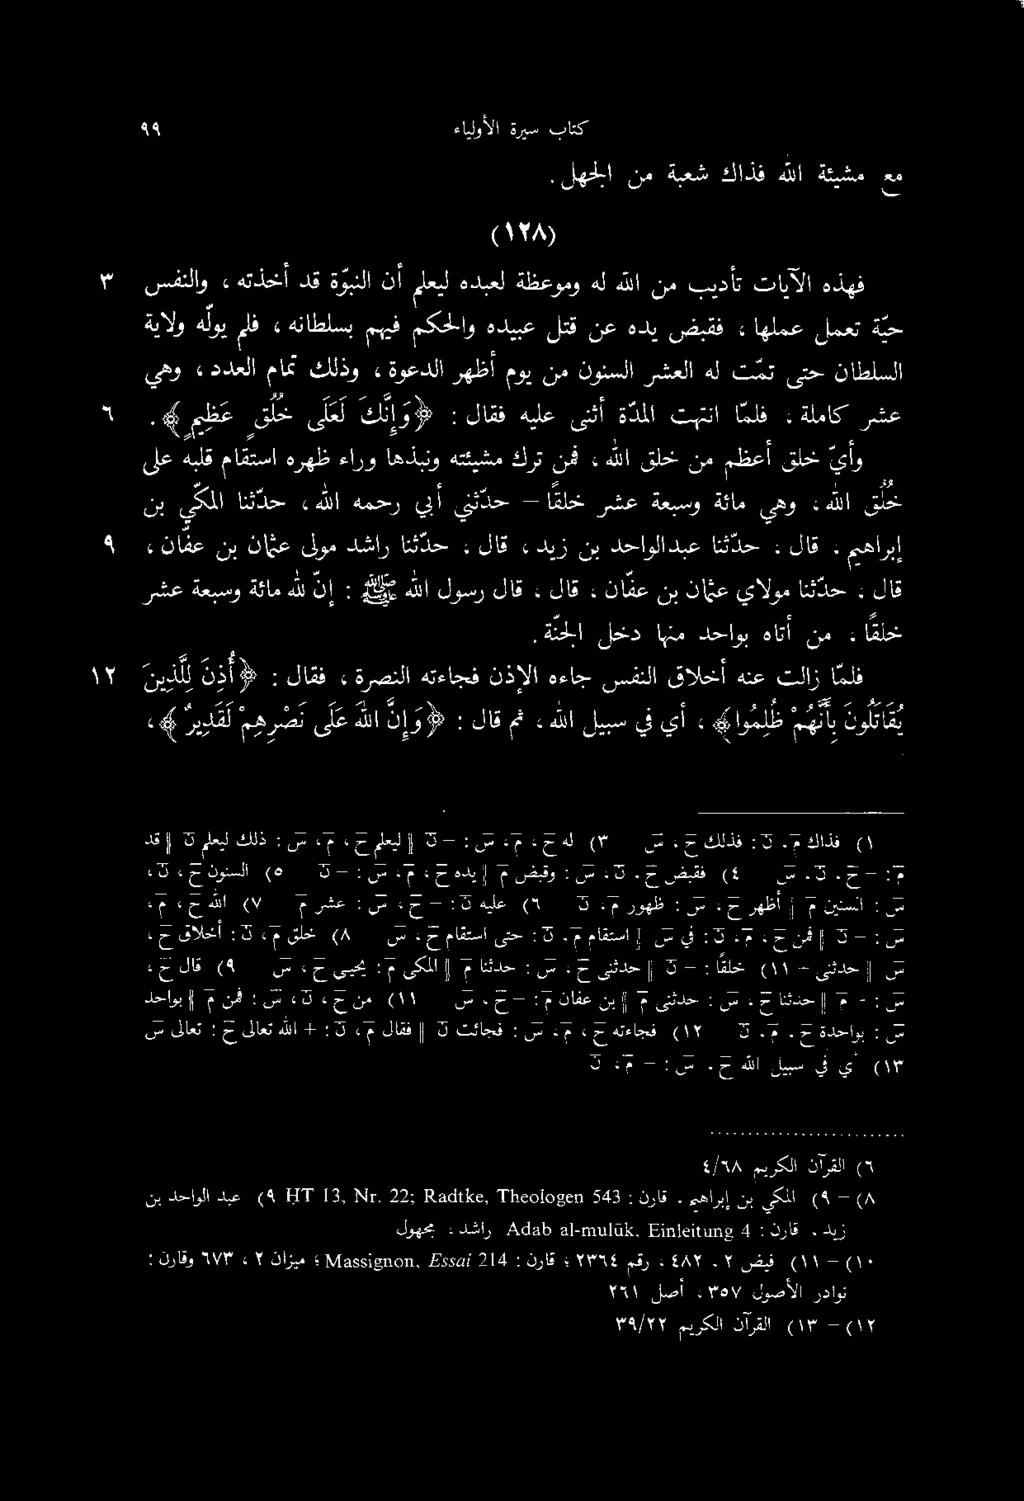 كتاب سيرة الأولياء ٩٩
مع مشيئة الله فذاك شعبة من الجهل.
(١٢٨)
فهذه الآيات تأديب من الله له وموعظة لعبده ليعلم أن النبوّة قد أخذته ، والنفس ٣
حيّة تعمل عملها ، فقبض يده عن قتل عبيده والحكم فيهم بسلطانه ، فلم يولّه ولاية
السلطان حتى تمّت له العشر السنون من يوم أظهر الدعوة ، وذلك تمام العدد ، وهي
عشر كاملة ، فلمّا انتهت المدّة أثنى عليه فقال : ﴿وَإِنَّكَ لَعَلَى خُلُقٍ عَظِيمٍ﴾ . ٦
وأيّ خلق أعظم من خلق الله ، فمن ترك مشيئته ونبذها وراء ظهره استقام قلبه على
خُلُق الله ، وهي مائة وسبعة عشر خلقاً – حدّثني أبي رحمه الله ، حدّثنا المكّي بن
إبراهيم ، قال ، حدّثنا عبدالواحد بن زيد ، قال ، حدّثنا راشد مولى عثمان بن عفّان ، ٩
قال ، حدّثنا مولاي عثمان بن عفّان ، قال ، قال رسول الله ﷺ : إنّ لله مائة وسبعة عشر
خلقاً ، من أتاه بواحد منها دخل الجنّة.
فلمّا زالت عنه أخلاق النفس جاءه الإذن فجاءته النصرة ، فقال : ﴿أُذِنَ لِلَّذِينَ ١٢
يُقَاتَلُونَ بِأَنَّهُمْ ظُلِمُوا﴾ ، أي في سبيل الله ، ثم قال : ﴿وَإِنَّ اللهَ عَلَى نَصْرِهِمْ لَقَدِيرٌ﴾ ،
١) فذاك م ، ن : فذلك ح ، س ٣) له ح ، م ، س : – ن ‖ ليعلم ح ، م ، س : ذلك ليعلم ن ‖ قد
م : – ح ، ن ، س ٤) فقبض ح ، ن ، س : وقبض م ‖ يده ح ، م ، س : – ن ٥) السنون ح ، ن ،
س : السنين م ‖ أظهر ح ، س : ظهور م ، ن ٦) عليه ن : – ح ، س : عشر م ٧) الله ح ، م ،
س : – ن ‖ فمن ح ، م ، ن : في س ‖ استقام م ، ن : حتى استقام ح ، س ٨) خلق م ، ن : أخلاق ح ،
س ‖ حدثني – ١١) خلقاً : – ن ‖ حدثني ح ، س : حدثنا م ‖ المكي م : يحيى ح ، س ٩) قال ح ،
س : – م ‖ حدثنا ح ، س : حدثني م ‖ بن عفان م : – ح ، س ١١) من ح ، ن ، س : فمن م ‖ بواحد
س : بواحدة ح ، م ، ن ١٢) فجاءته ح ، م ، س : فجائت ن ‖ فقال م ، ن : + الله تعالى ح : تعالى س
١٣) أي في سبيل الله ح ، س : – م ، ن
٦) القرآن الكريم ٤/٦٨
٨) – ٩) المكي بن إبراهيم . قارن : HT 13, Nr. 22; Radtke, Theologen 543 ٩) عبد الواحد بن
زيد . قارن : Adab al-mulūk, Einleitung 4 راشد ، مجهول
١٠) – ١١) فيض ٢ ، ٤٨٢ ، رقم ٢٣٦٤ ؛ قارن : Massignon, Essai 214 ؛ ميزان ٢ ، ٦٧٣ وقارن :
نوادر الأصول ٣٥٧ ، أصل ٢٦١
١٢) – ١٣) القرآن الكريم ٣٩/٢٢